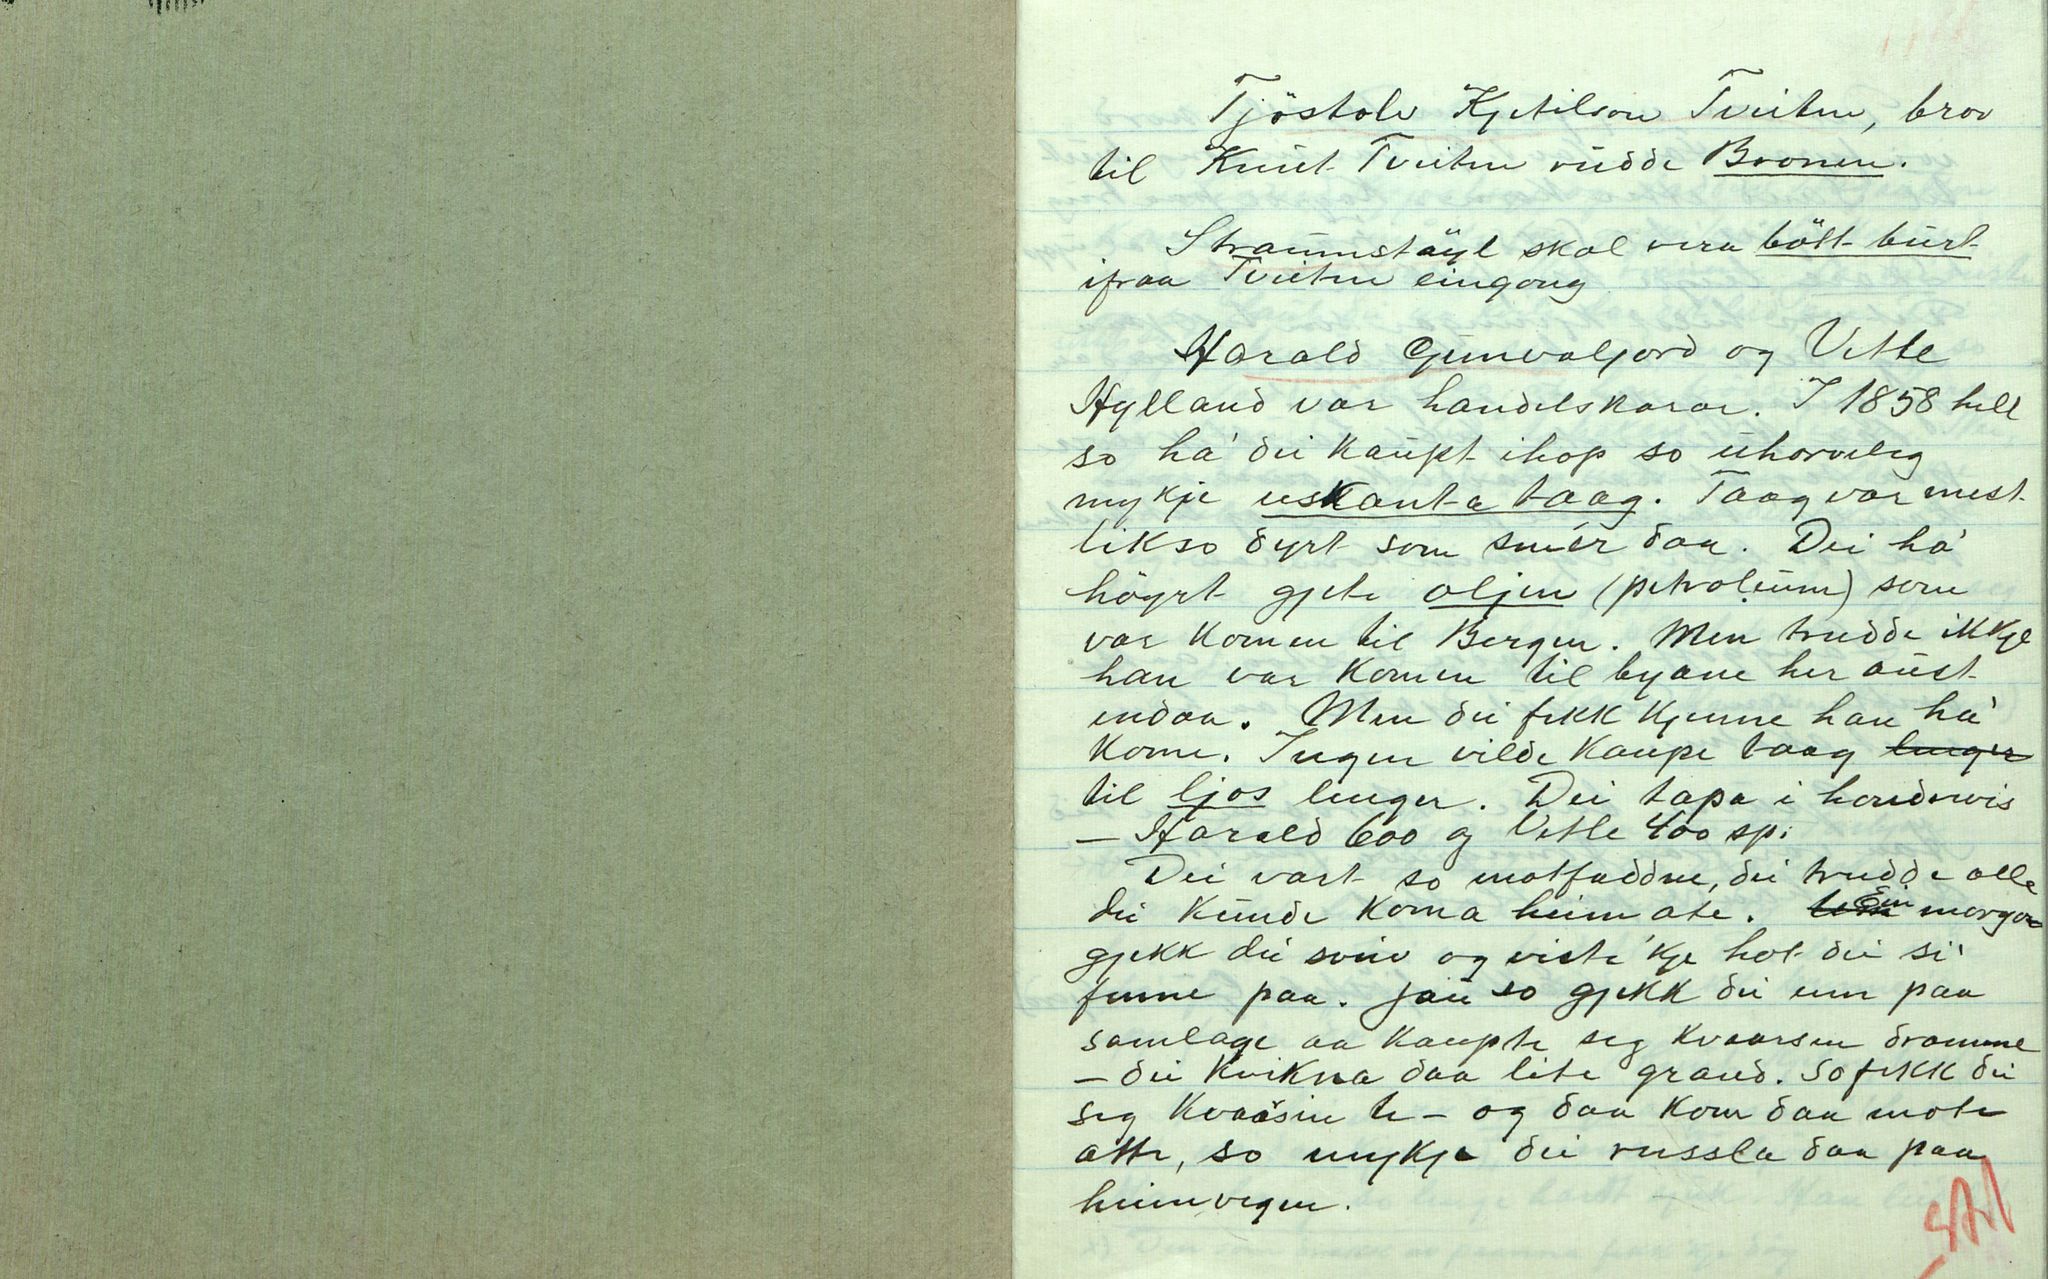 Tjöstolv Kjetilson Tveiten, bror
til Knut Tveiten rudde Bronen.
Straumstöyl skal vera bött burt
ifraa Tveiten eingong
Harald Gunvaljord og Vetle
Hylland var handelskarar. I 1858 hell
so ha' dei kaupt ihop so uhorveleg
mykje uskanta taag. Taag var mest
likso dyrt som smér daa. Dei ha'
höyrt gjete oljen (petroleum) som
var komen til Bergen. Men trudde ikkje
han var komen til byane her aust
endaa. Men dei fekk kjenne han ha'
kome. Ingen vilde kaupe taag lenger
til ljos lenger. Dei tapa i hondrevis
– Harald 600 og Vetle 400 sp.
Dei vart so motfaddne, dei trudde alle
dei kunde koma heim ate. Ein morgon
gjekk dei sviv og viste 'kje hot dei si'
finne paa. Jau so gjekk dei inn paa
samlage aa kaupte seg kvaarsin dramme
– dei kvikna daa lite grand. So fekk dei
seg kvaarsin te – og daa kom daa mote
atte, so mykje dei russla daa paa
heimvegen.